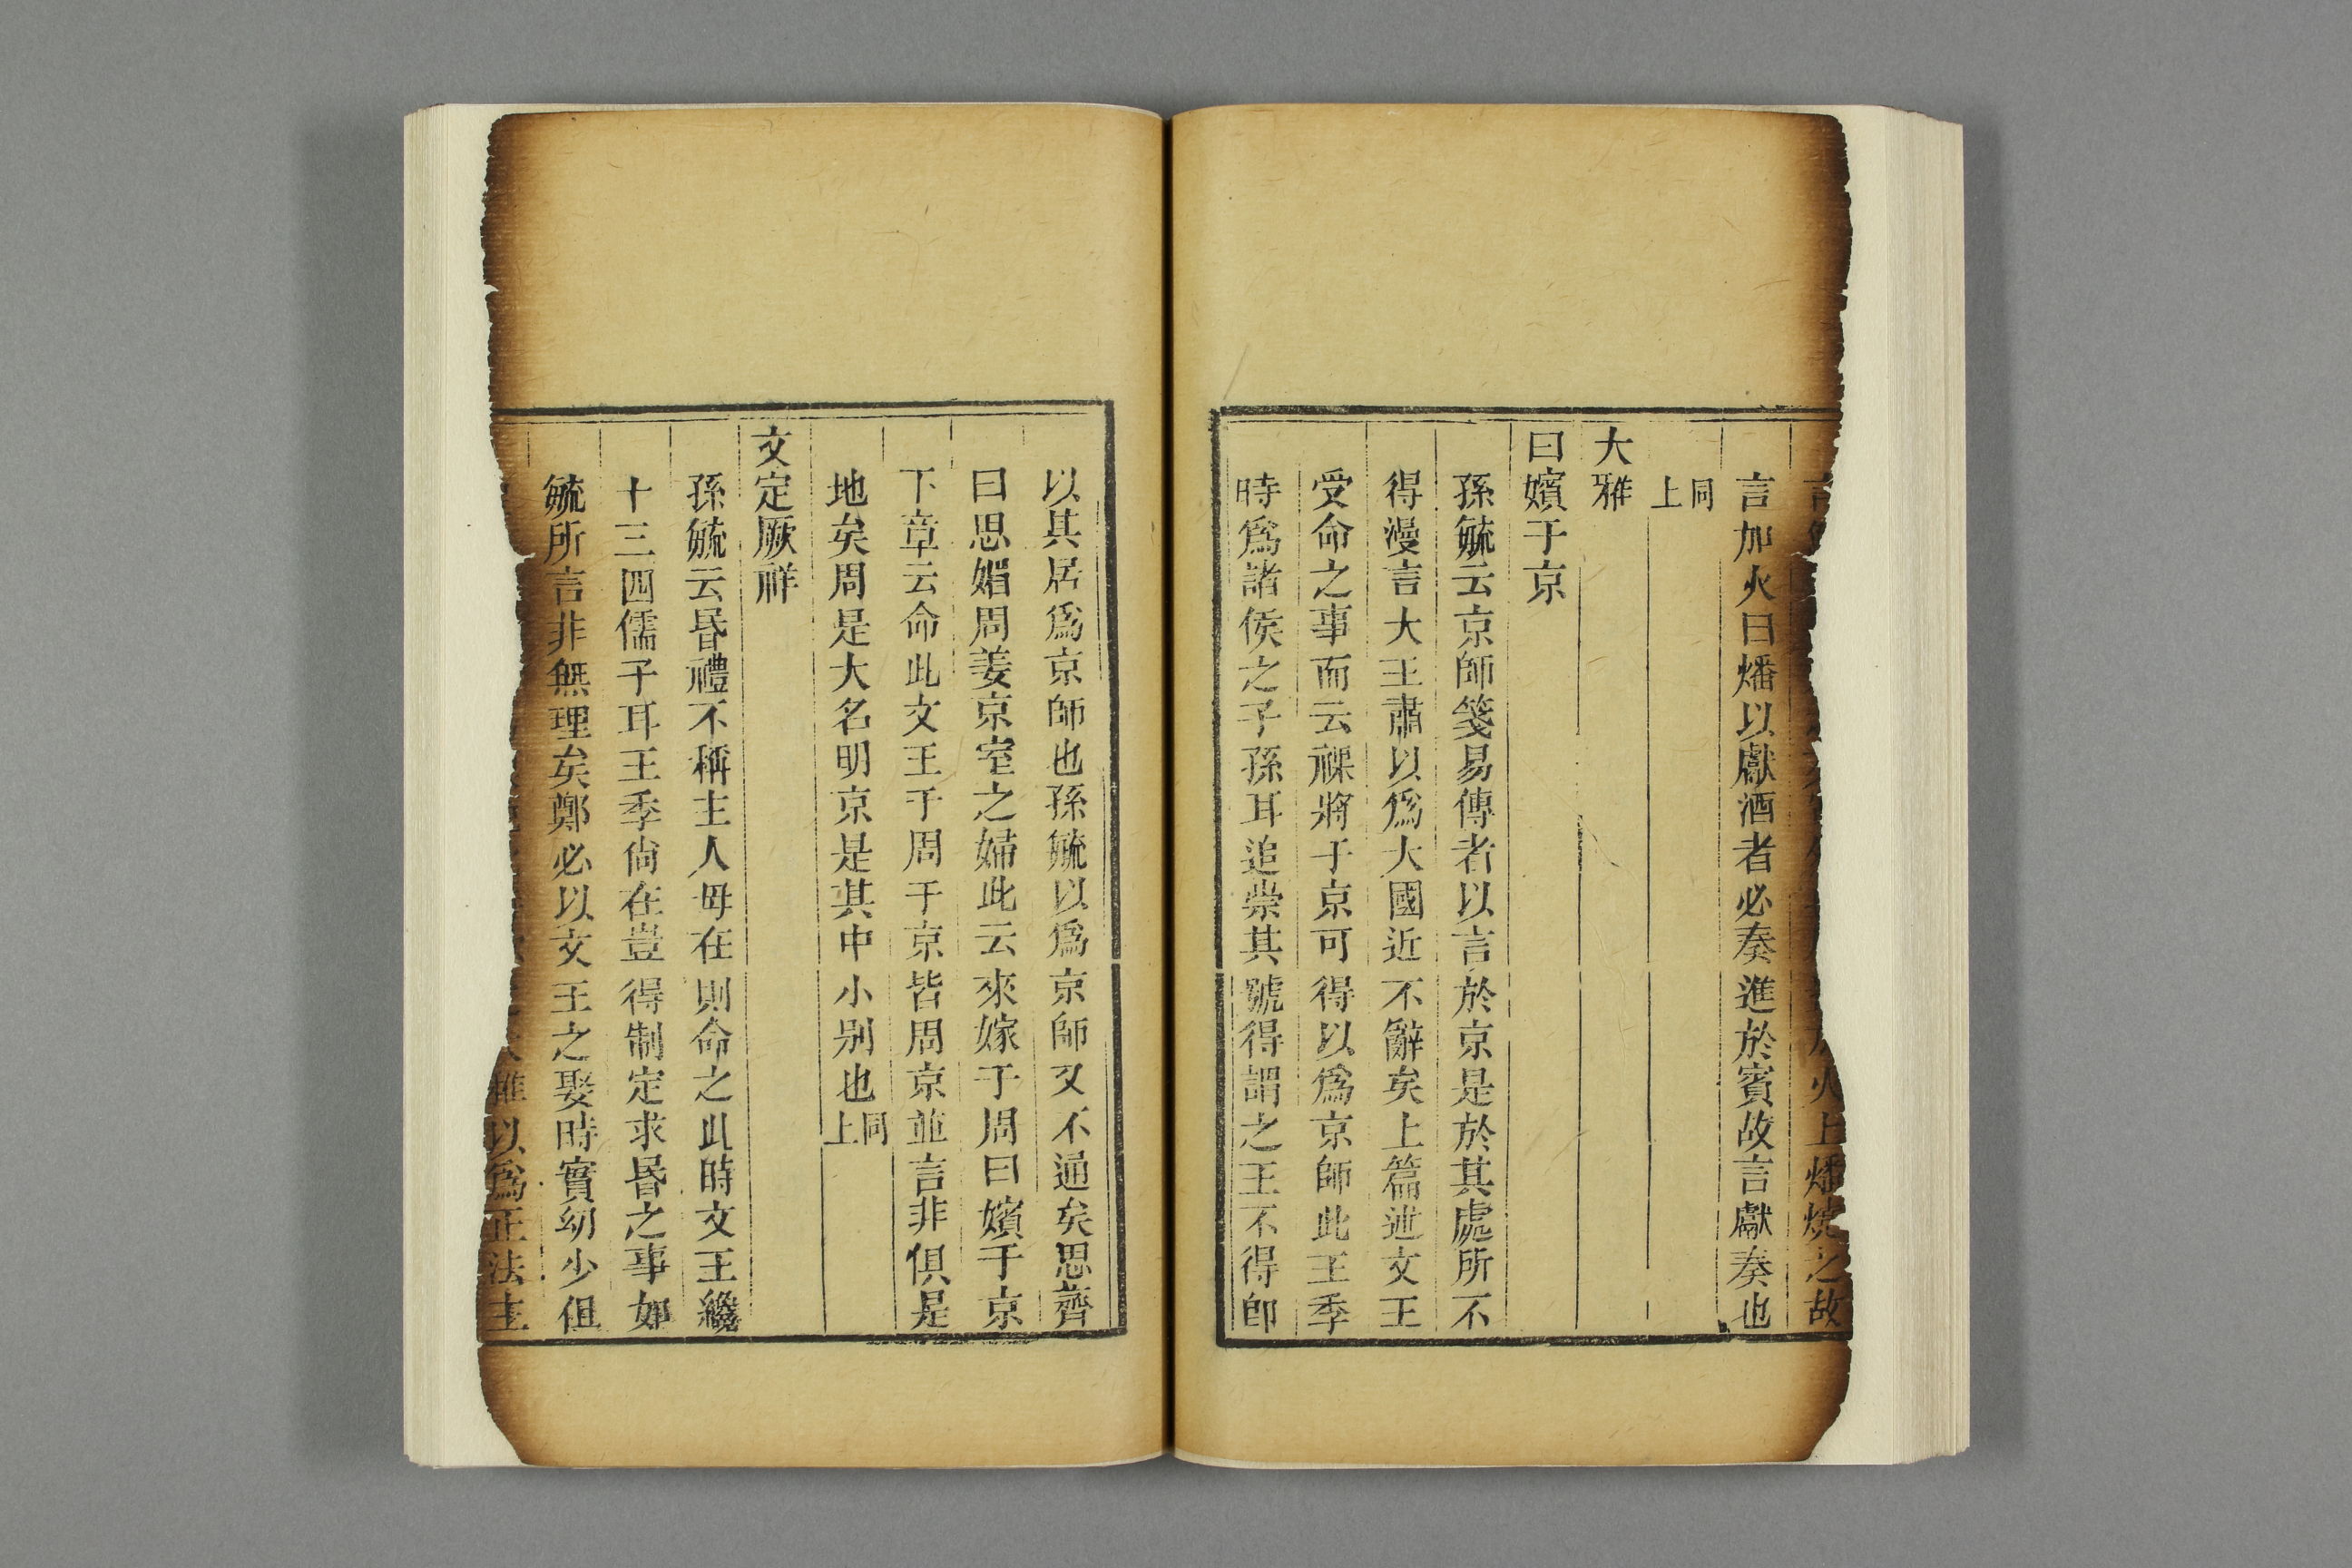 言火上燔燒之故
言加火曰燔以獻酒者必奏進於賓故言獻奏也
同上
大雅
曰嬪于京
孫毓云京師箋易傳者以言於京是於其處所不
得漫言大王肅以爲大國近不辭矣上篇述文王
受命之事而云祼將于京可得以爲京師此王季
時爲諸侯之子孫耳追崇其號得謂之王不得卽
以其居爲京師也孫毓以爲京師又不通矣思齊
曰思媚周姜京室之婦此云來嫁于周曰嬪于京
下章云命此文王于周于京皆周京並言非俱是
地矣周是大名明京是其中小别也同上
文定厥祥
孫毓云昬禮不稱主人母在則命之此時文王纔
十三四儒子耳王季尙在豈得制定求昬之事如
毓所言非無理矣鄭必以文王之娶時實幼少但
以爲正法主